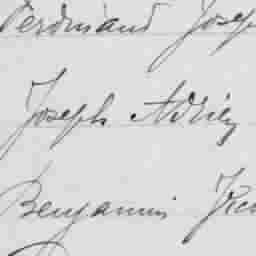 Ferdinand Josep
Joseph Adrien
Benjamin